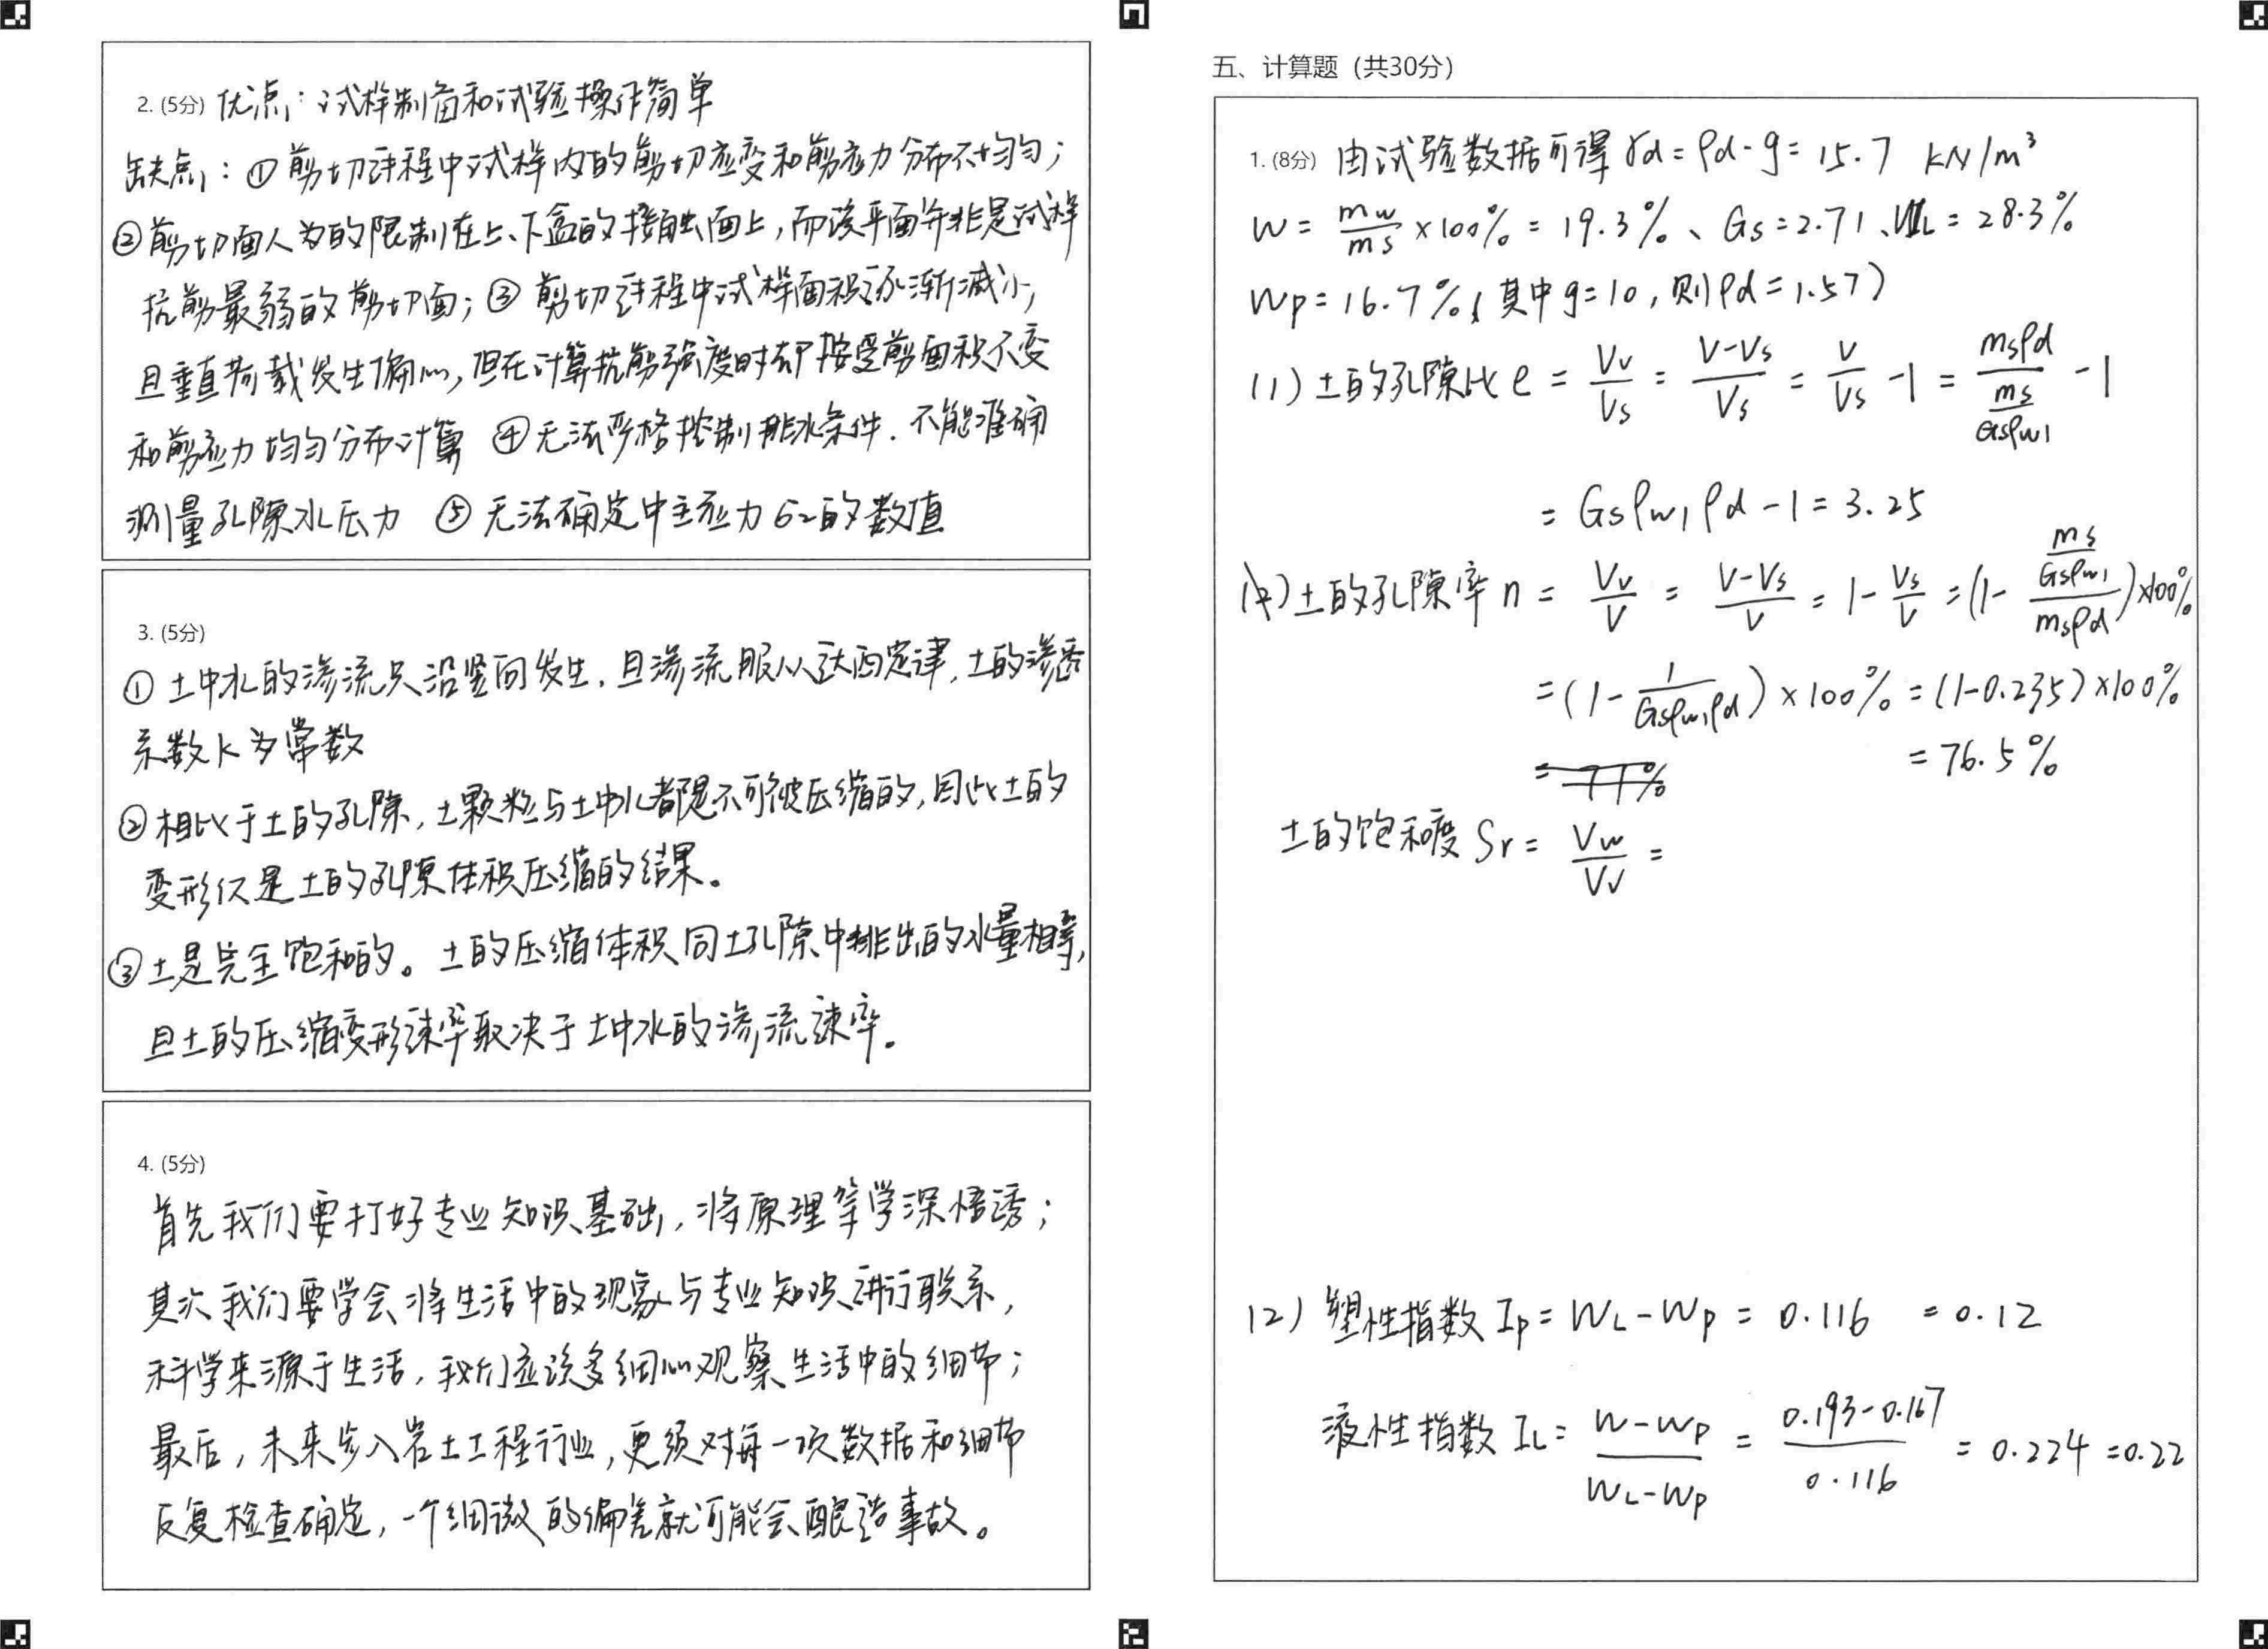 2. (5分) 优点：试样制备和试验操作简单
缺点：①剪切过程中试样内的剪切应变和剪应力分布不均匀；
②剪切面人为的限制在上、下盒的接触面上，而该平面并非是试样
抗剪最弱的剪切面；③ 剪切过程中试样面积逐渐减小，
且垂直荷载发生偏心，但在计算抗剪强度时却按受剪面积不变
和剪应力均匀分布计算 ④无法严格控制排水条件．不能准确
测量孔隙水压力 ⑤ 无法确定中主应力σ2的数值
3. (5分)
① 土中水的渗流只沿竖向发生，且渗流服从达西定律，土的渗透
系数k为常数
②相比于土的孔隙，土颗粒与土中水都是不可被压缩的，因此土的
变形仅是土的孔隙体积压缩的结果。
③土是完全饱和的。土的压缩体积同土孔隙中排出的水量相等，
且土的压缩变形速率取决于土中水的渗流速率。
4. (5分)
首先我们要打好专业知识基础，将原理等学深悟透；
其次我们要学会将生活中的现象与专业知识进行联系，
科学来源于生活，我们应该多细心观察生活中的细节；
最后，未来步入岩土工程行业，更须对每一次数据和细节
反复检查确定，一个细微的偏差就可能会酿造事故。
五、计算题（共30分）
1. (8分) 由试验数据可得 γd = ρd·g = 15.7 kN/m³
w = mw/ms ×100% = 19.3%、Gs=2.71、WL = 28.3%
Wp = 16.7%（其中g=10，则ρd=1.57）
(1) 土的孔隙比 e = Vv/Vs = (V-Vs)/Vs = V/Vs -1 = msρd/(ms/Gsρw1) -1
= Gsρw1ρd -1 = 3.25
土的孔隙率 n = Vv/V = (V-Vs)/V = 1- Vs/V = (1- (ms/Gsρw1)/msρd)×100%
=(1- 1/Gsρw1ρd) ×100% = (1-0.235)×100%
= 77% = 76.5%
土的饱和度 Sr = Vw/Vv =
(2) 塑性指数 Ip = WL-Wp = 0.116 = 0.12
液性指数 IL = (W-Wp)/(WL-Wp) = (0.193-0.167)/0.116 = 0.224 = 0.22